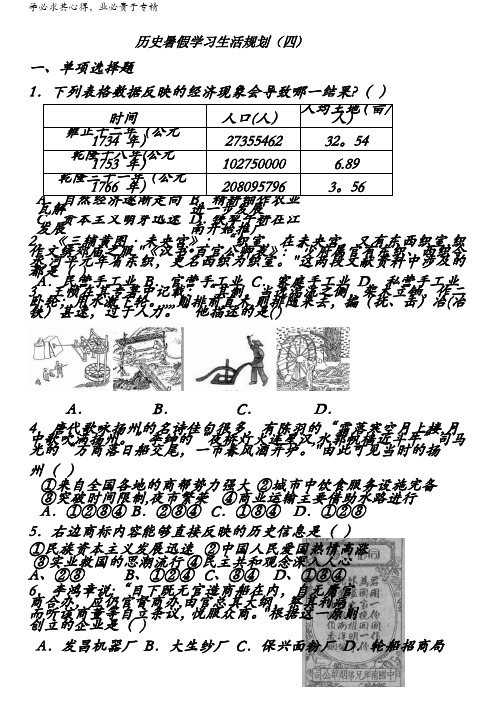 学必求其心得，业必贵于专精
历史暑假学习生活规划（四）
一、单项选择题
1．下列表格数据反映的经济现象会导致哪一结果?（ ）
时间 人口(人) 人均土地（亩/人）
雍正十二年（公元1734 年） 27355462 32。54
乾隆十八年(公元1753 年） 102750000 6.89
乾隆三十一年（公元1766 年） 208095796 3。56
A．自然经济逐渐走向瓦解 B．精耕细作农业进一步发展
C．资本主义萌芽迅速发展 D．铁犁牛耕在江南开始推广
2．《三辅黄图·未央宫》 织室，在未央宫。又有东西织室,织
都是（ ）
A．民营手工业 B．官营手工业 C．家庭手工业 D．私营手工业
铁）甚速，过于人力。” 他描述的是()
A． B． C． D．
4．唐代歌咏扬州的名诗佳句很多，有陈羽的“霜落寒空月上楼,月
中歌吹满扬州。” 李绅的“夜桥灯火连星汉,水郭帆樯近斗牛” 司马
光的“万商落日船交尾，一市春风酒并垆。”由此可见当时的扬
州（ ）
①来自全国各地的商帮势力强大 ②城市中饮食服务设施完备
③突破时间限制,夜市繁荣 ④商业运输主要借助水路进行
A．①②③④ B．②③④ C．①③④ D．①②③
5．右边商标内容能够直接反映的历史信息是（ ）
①民族资本主义发展迅速 ②中国人民爱国热情高涨
③实业救国的思潮流行④民主共和观念深入人心
A、②③ B、①②④ C、③④ D、①③④
6．李鸿章说:“目下既无官造商船在内，自无庸官
商合办，应仍官督商办,由官总其大纲，察其利病，
而听该商董等自立条议，悦服众商。”根据这一原则
创立的企业是（ ）
A．发昌机器厂 B．大生纱厂 C．保兴面粉厂 D．轮船招商局